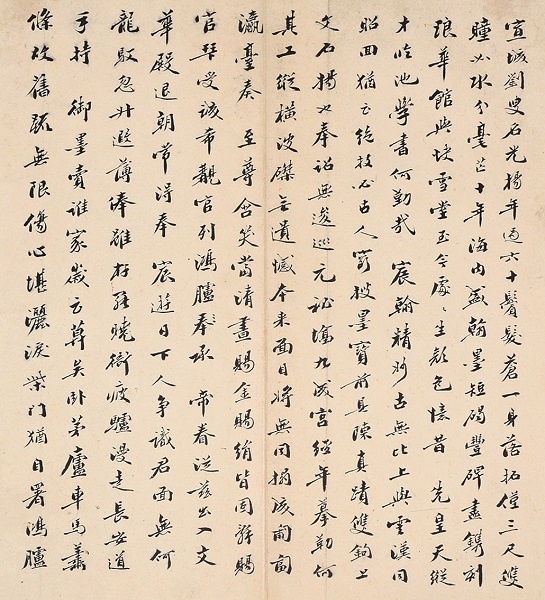 宣城劉叟名光揚年過六十鬢髮蒼一身落拓僅三尺雙
瞳如水分毫芒十年海內盛翰墨短碣豐碑盡鐫刻
琅華館與快雪堂至今處處生顏色憶昔 先皇天縱
才臨池學書何勤哉 宸翰精妙古無比上與雲漢同
昭回猶云絕技必古人窮搜墨寶前具陳真蹟雙鉤上
文石揚也奉詔無逡巡元祕塔九成宮經年摹勒何
其工縱橫波磔無遺憾本來面目將無同搨成
瀛臺奏 至尊含笑當清晝賜金賜綃皆固辭賜
官拜受誠希覯官列鴻臚奉承 帝眷從茲出入文
華殿退朝常得奉 宸遊日下人爭識君面無何
龍馭忽升遐薄俸雖存衙疲驢漫走長安道
手持 御墨賣誰家歲云莫矣臥茅廬車馬蕭
條故舊疏無限傷心堪灑淚柴門猶自署鴻臚